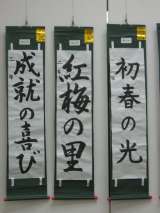 初春の光
紅梅の里
成就の喜び